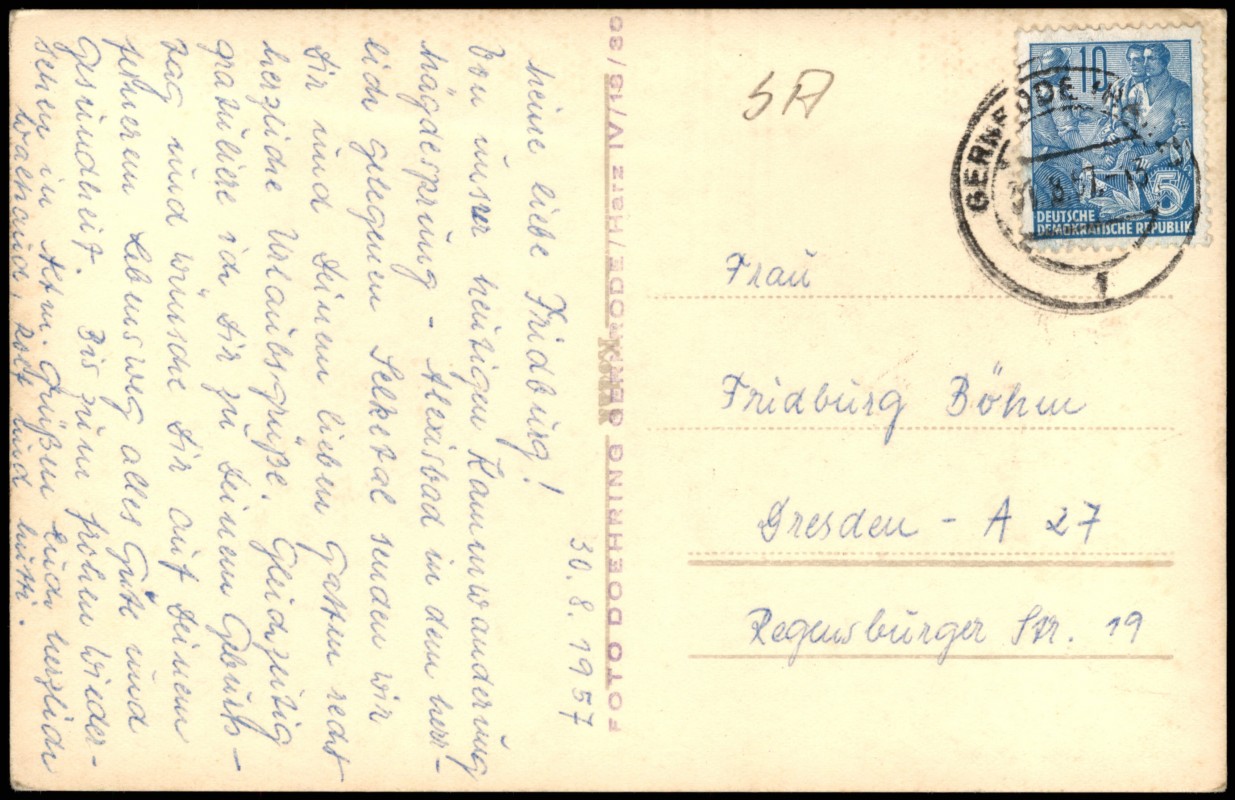 30. 8. 1957
Meine liebe Fridburg!
Von unsrer heutigen Kammwanderung
Mägdesprung - Alexisbad in dem herr-
lich gelegenen Selketal senden wir
Dir und Deinem lieben Gatten recht
herzliche Urlaubsgrüße. Gleichzeitig
gratuliere ich Dir zu Deinem Geburts-
tag und wünsche Dir auf Deinem
ferneren Lebensweg alles Gute und
Gesundheit. Bis zum frohen Wieder-
sehen in Attm. grüßen Euch herzlich
Rolf und Mutti.
FOTO DOEHRING GERNRODE/Harz IV/18/36
SA
10
5
DEUTSCHE
DEMOKRATISCHE REPUBLIK
GERNRODE
30.8.57.-13
1
Frau
Fridburg Böhm
Dresden - A 27
Regensburger Str. 19